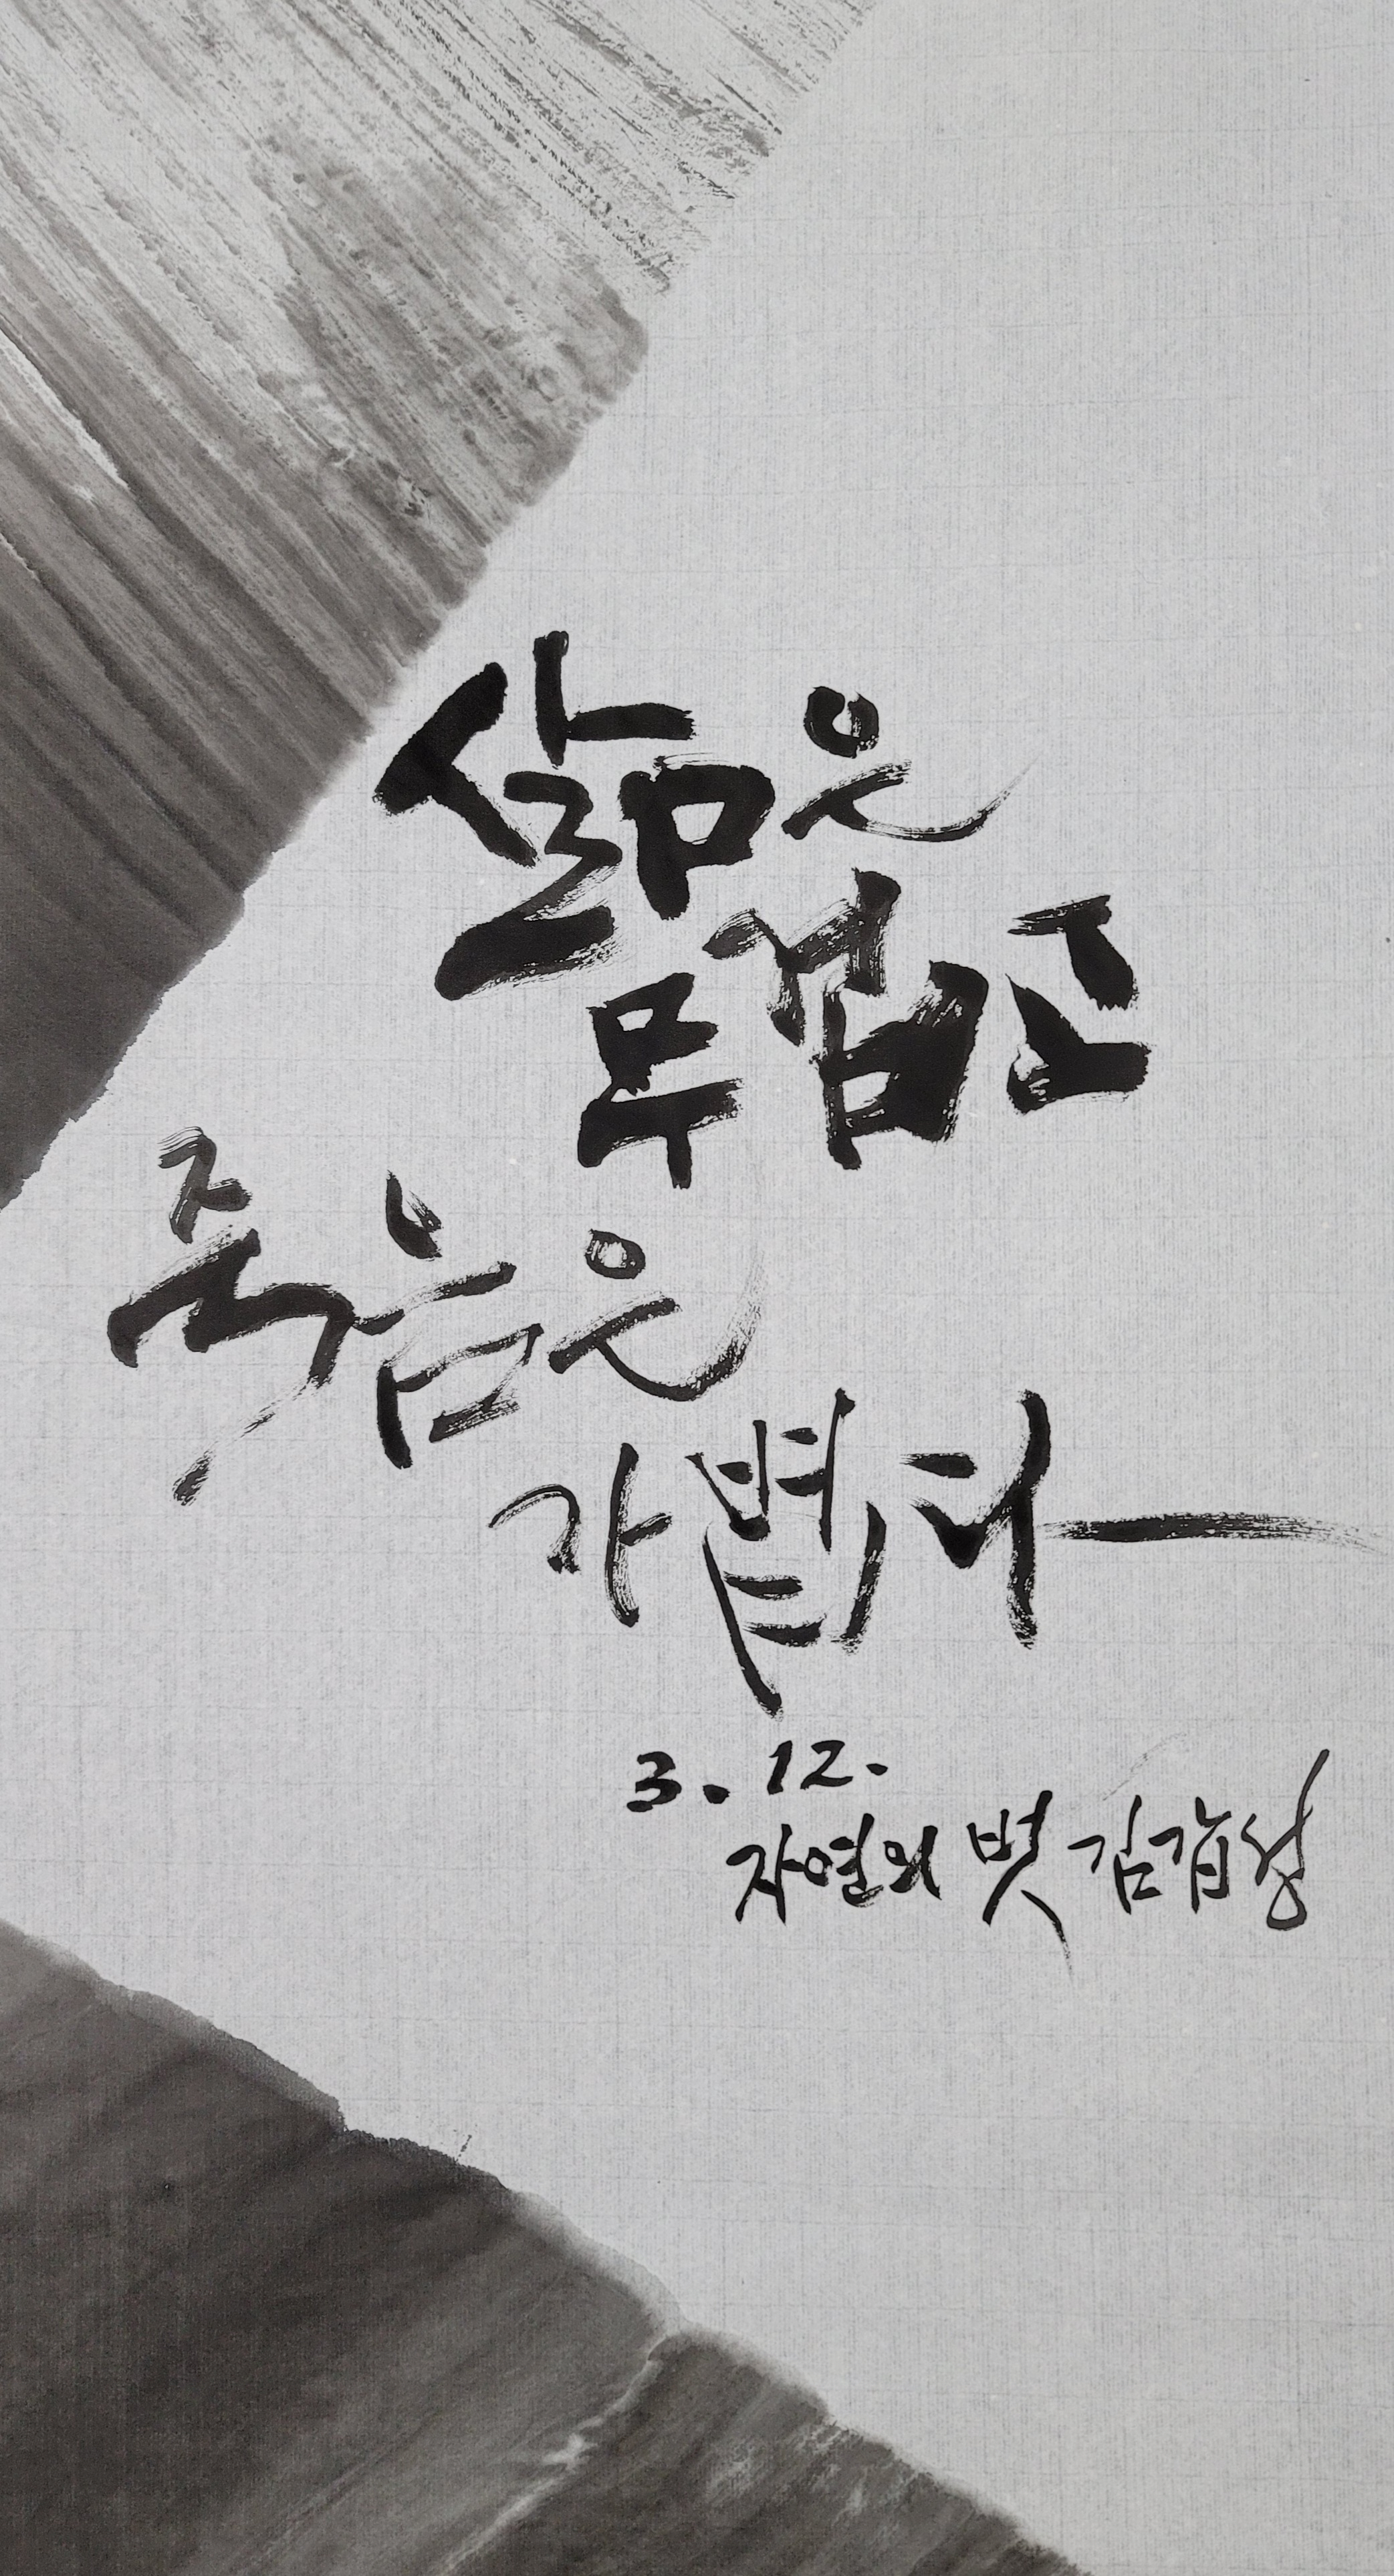 삶은
무겁고
죽음은
가볍다
3. 12.
자연의 벗